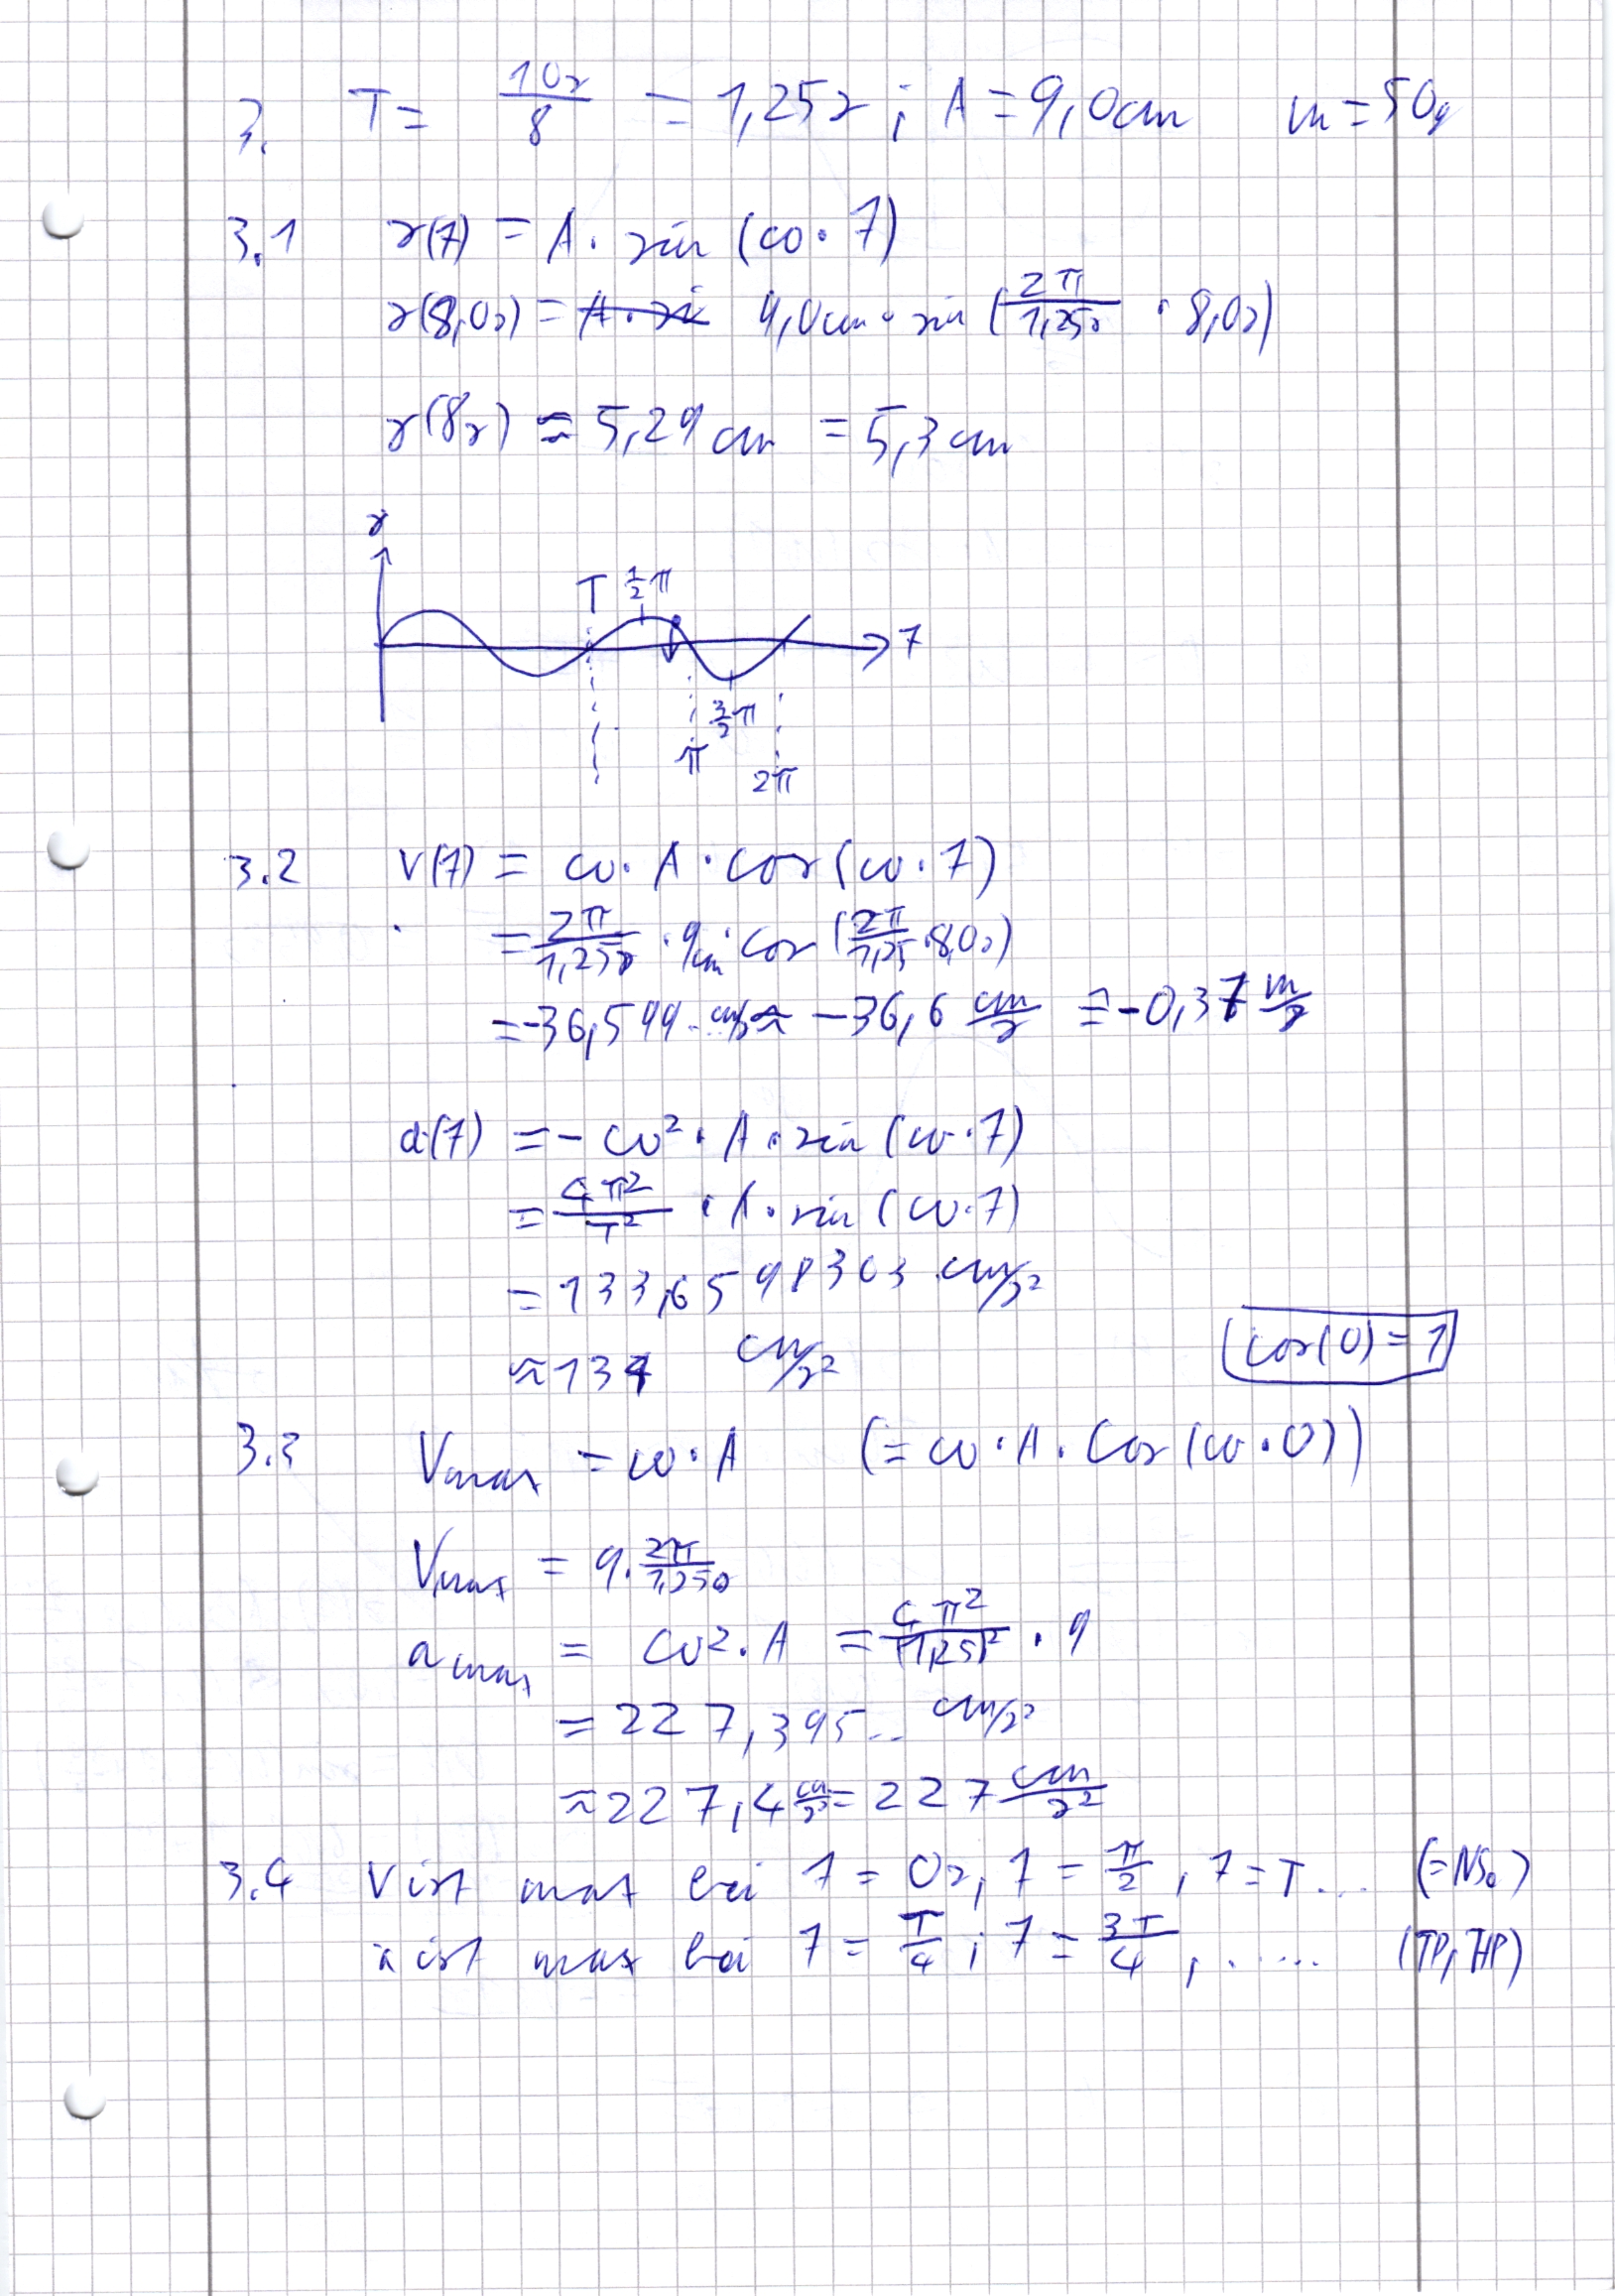 3. T = 10s/8 = 1,25s ; A = 9,0cm m = 50g
3.1 s(t) = A · sin (ω · t)
s(8,0s) = A · si 9,0cm · sin (2π/1,25s · 8,0s)
s(8s) ≈ 5,29 cm = 5,3 cm
s
T 1/2 π
t
3/2 π
π
2π
3.2 v(t) = ω · A · cos (ω · t)
= 2π/1,25s · 9cm · cos (2π/1,25 · 8,0s)
= -36,599.. cm/s ≈ -36,6 cm/s = -0,37 m/s
a(t) = - ω² · A · sin (ω · t)
= 4π²/T² · A · sin (ω · t)
= 133,6598303 cm/s²
≈ 134 cm/s²
cos(0) = 1
3.3 Vmax = ω · A (= ω · A · cos (ω · 0))
Vmax = 9 · 2π/1,25s
a max = ω² · A = 4π²/(1,25)² · 9
= 227,395.. cm/s²
≈ 227,4 cm/s² = 227 cm/s²
3.4 V ist max bei t = 0s, t = π/2 , t = T ... (=NS)
a ist max bei t = T/4 ; t = 3T/4 , ..... (TP, HP)